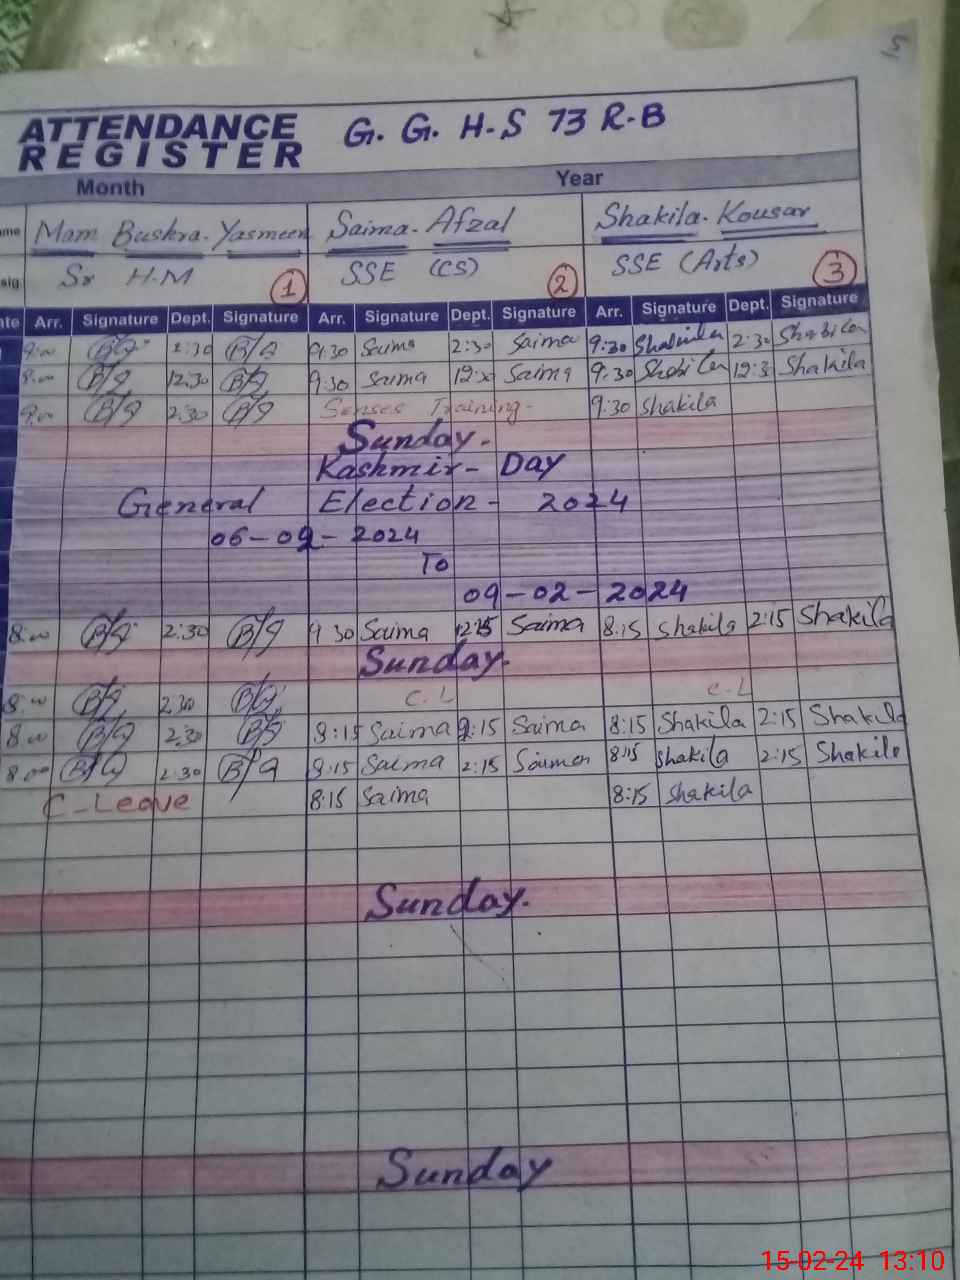 5
ATTENDANCE REGISTER G. G. H-S 73 R-B
Month Year
ame Mam Bushra. Yasmeen Saima. Afzal Shakila. Kousar
sig. Sr H.M 1 SSE (CS) 2 SSE (Arts) 3
ate Arr. Signature Dept. Signature Arr. Signature Dept. Signature Arr. Signature Dept. Signature
9:00 2:30 9:30 Saima 2:30 Saima 9:30 Shakila 2:30 Shakila
9:00 12:30 9:30 Saima 12:30 Saima 9:30 Shakila 12:3 Shakila
9:00 2:30 Senses Training- 9:30 Shakila
Sunday.
Kashmir- Day
General Election- 2024
06-02-2024
To
09-02-2024
8:00 2:30 9 30 Saima 12:15 Saima 8:15 Shakila 2:15 Shakila
Sunday.
8:00 2.30 C.L C-L
8:00 2:30 8:15 Saima 2:15 Saima 8:15 Shakila 2:15 Shakila
8:00 2:30 8:15 Saima 2:15 Saima 8:15 Shakila 2:15 Shakila
C-Leave 8:15 Saima 8:15 Shakila
Sunday.
Sunday
15-02-24 13:10